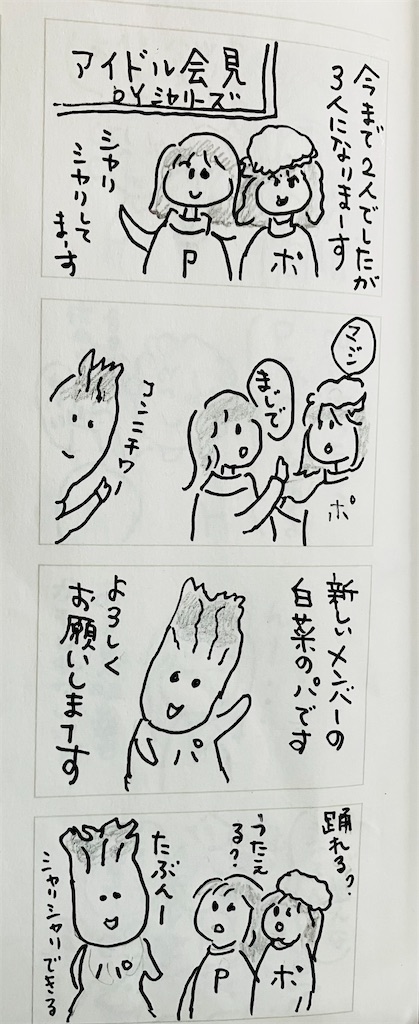 アイドル会見
DYシャリーズ
今まで2人でしたが
3人になりまーす
シャリ
シャリしてまーす
P
ポ
マジ
まじで
コンニチワー
ポ
新しいメンバーの
白菜のパです
よろしく
お願いしまーす
パ
踊れる?
うたえる?
たぶんー
シャリシャリできる
パ
P
ポ